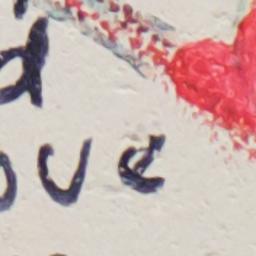 d
ove